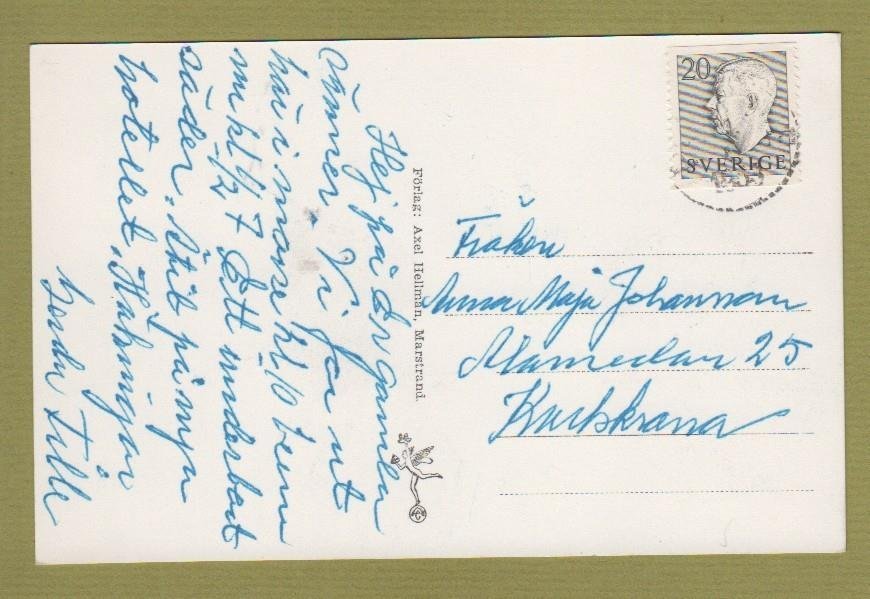 Hej på Er gamla
vänner. Vi for ut
här i morse kl 10 hem
kl 1/2 7 Ett underbart
väder. Skriv på nya
hotellet. Hälsningar
20
SVERIGE
Förlag: Axel Hellman, Marstrand.
Fröken
Anna Maja Johansson
Alamedan 25
Karlskrona